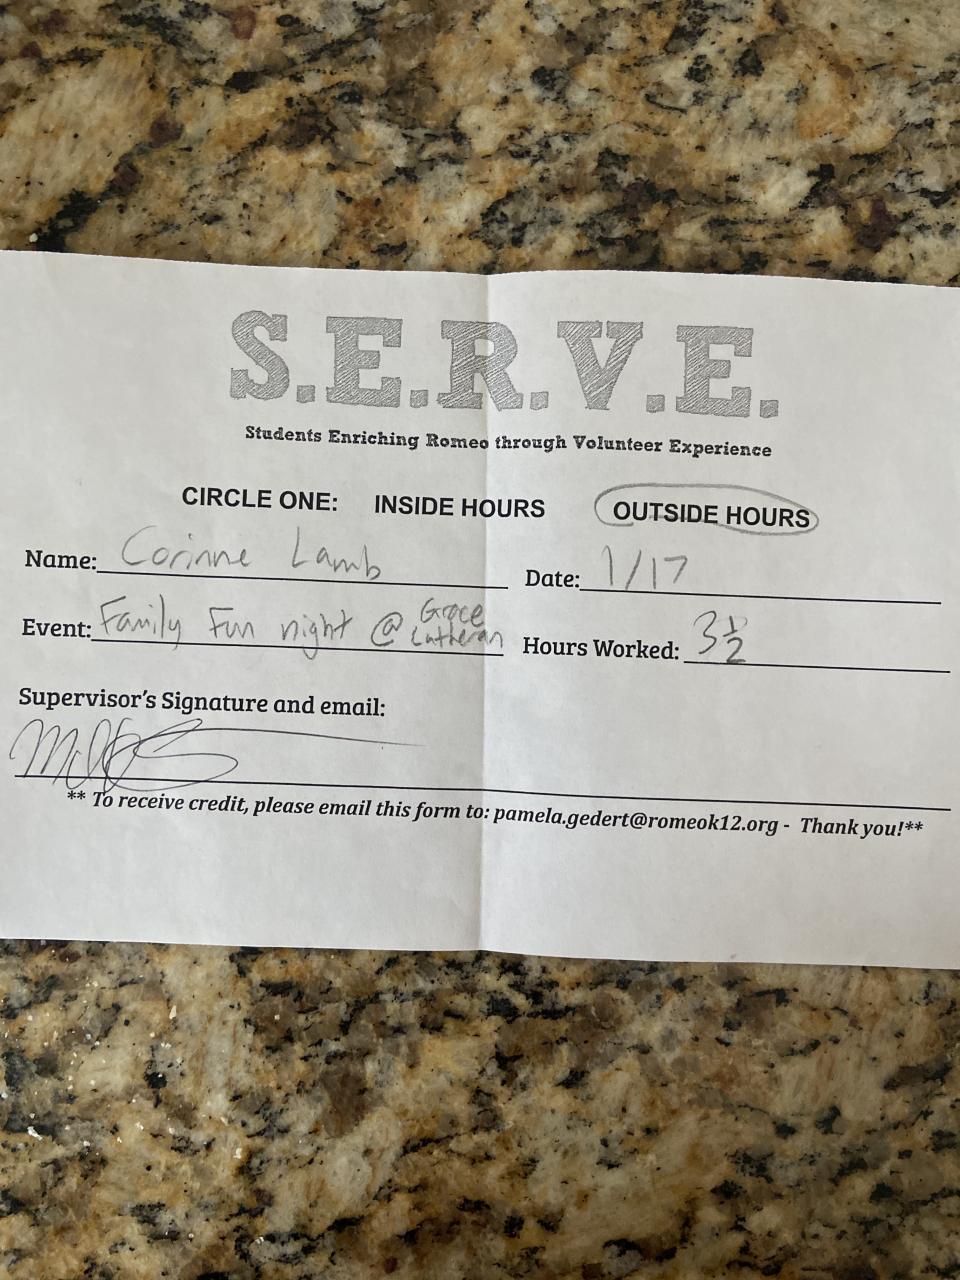 S.E.R.V.E.
Students Enriching Romeo through Volunteer Experience
CIRCLE ONE: INSIDE HOURS OUTSIDE HOURS
Name: Corinne Lamb Date: 1/17
Event: Family Fun night @ Grace Lutheran Hours Worked: 3 1/2
Supervisor's Signature and email:
** To receive credit, please email this form to: pamela.gedert@romeok12.org - Thank you!**